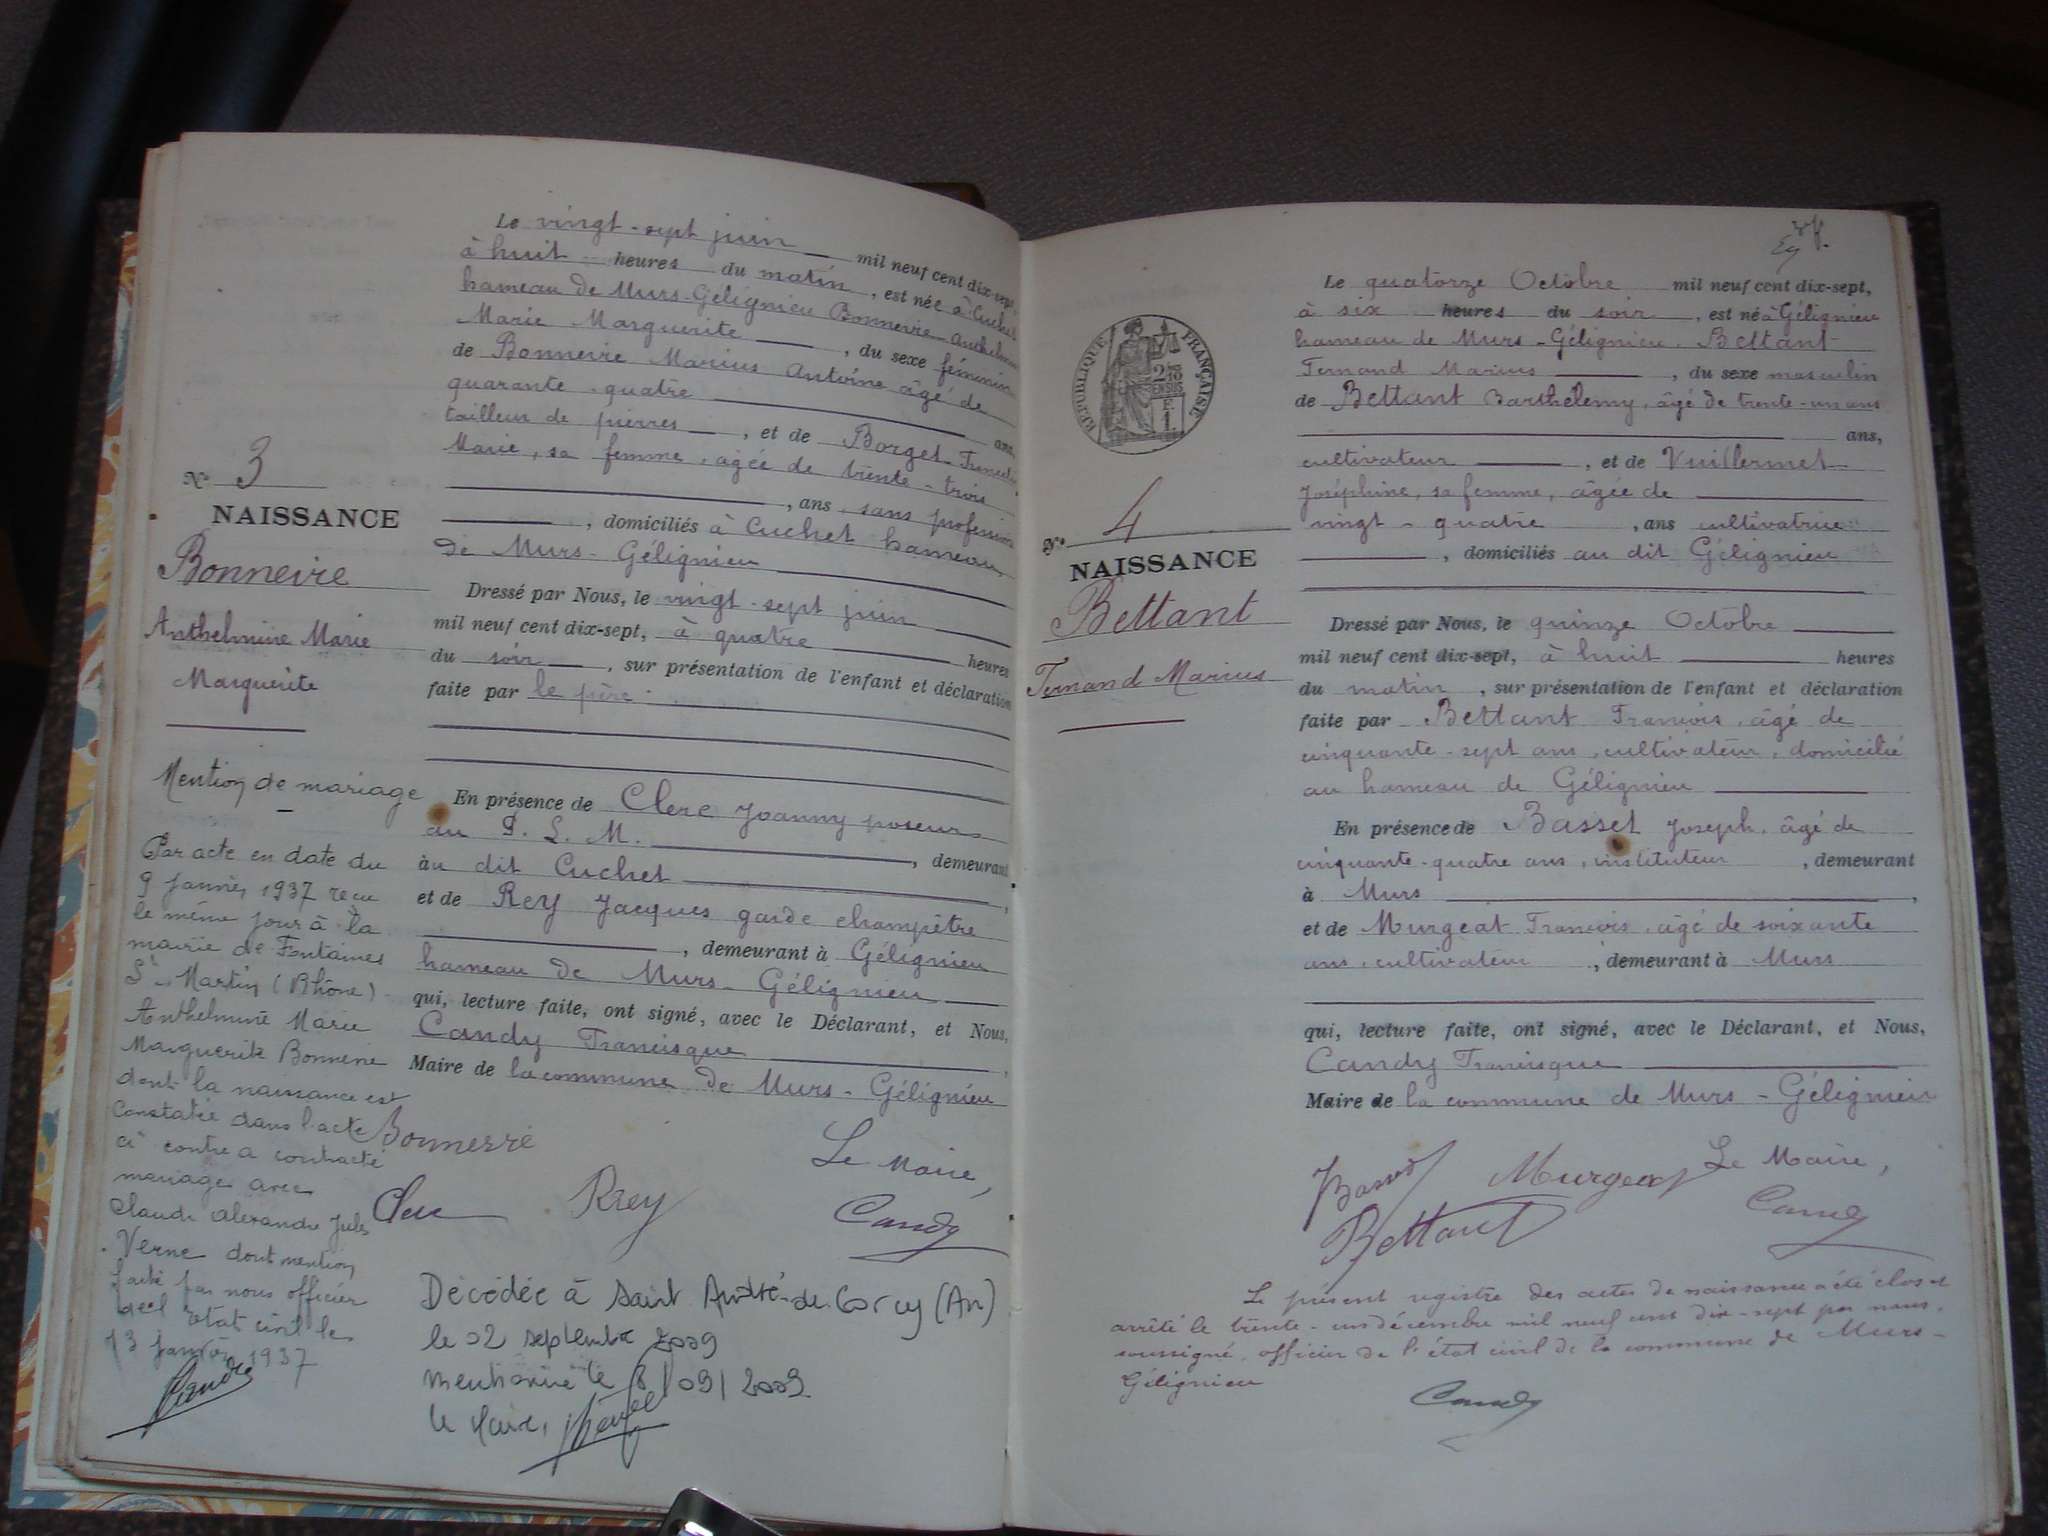 Le vingt-sept juin mil neuf cent dix-sept,
à huit heures du matin, est née à Cuchet
hameau de Murs-Gélignieu Bonnevie Anthelmine
Marie Marguerite, du sexe féminin
de Bonnevie Marius Antoine âgé de
quarante-quatre ans,
tailleur de pierres, et de Borget
Marie, sa femme, âgée de trente-trois
, ans, sans profession
, domiciliés à Cuchet hameau
de Murs-Gélignieu
Dressé par Nous, le vingt-sept juin
mil neuf cent dix-sept, à quatre heures
du soir, sur présentation de l'enfant et déclaration
faite par le père.
En présence de Clerc Joanny poseur
au P. L. M., demeurant
au dit Cuchet,
et de Rey Jacques garde champêtre
, demeurant à Gélignieu
hameau de Murs-Gélignieu
qui, lecture faite, ont signé, avec le Déclarant, et Nous,
Candy Francisque,
Maire de la commune de Murs-Gélignieu
Bonnevie
Le Maire,
Clerc Rey Candy
Décédée à Saint André de Corcy (Ain)
le 02 septembre 2009
mentionné le 8/09/2009
le Maire,
No 3
NAISSANCE
Bonnevie
Anthelmine Marie
Marguerite
Mention de mariage
Par acte en date du
9 janvier 1937 reçu
le même jour à la
mairie de Fontaines
St-Martin (Rhône)
Anthelmine Marie
Marguerite Bonnevie
dont la naissance est
constatée dans l'acte
ci contre a contracté
mariage avec
Claude Alexandre Jules
Verne dont mention
faite par nous officier
de l'état civil le
13 janvier 1937
No 4
NAISSANCE
Bettant
Fernand Marius
RÉPUBLIQUE FRANÇAISE
Le quatorze Octobre mil neuf cent dix-sept,
à six heures du soir, est né à Gélignieu
hameau de Murs-Gélignieu. Bettant
Fernand Marius, du sexe masculin
de Bettant Barthélemy, âgé de trente-un ans
ans,
cultivateur, et de Vuillermet
Joséphine, sa femme, âgée de
vingt-quatre, ans cultivatrice
, domiciliés au dit Gélignieu
Dressé par Nous, le quinze Octobre
mil neuf cent dix-sept, à huit heures
du matin, sur présentation de l'enfant et déclaration
faite par Bettant François, âgé de
cinquante-sept ans, cultivateur, domicilié
au hameau de Gélignieu
En présence de Basset Joseph, âgé de
cinquante-quatre ans, instituteur, demeurant
à Murs,
et de Murgeat François, âgé de soixante
ans, cultivateur, demeurant à Murs
qui, lecture faite, ont signé, avec le Déclarant, et Nous,
Candy Francisque
Maire de la commune de Murs-Gélignieu
Basset Murgeat Le Maire,
Bettant Candy
Le présent registre des actes de naissance a été clos et
arrêté le trente-un décembre mil neuf cent dix-sept par nous,
soussigné, officier de l'état civil de la commune de Murs-
Gélignieu
Candy